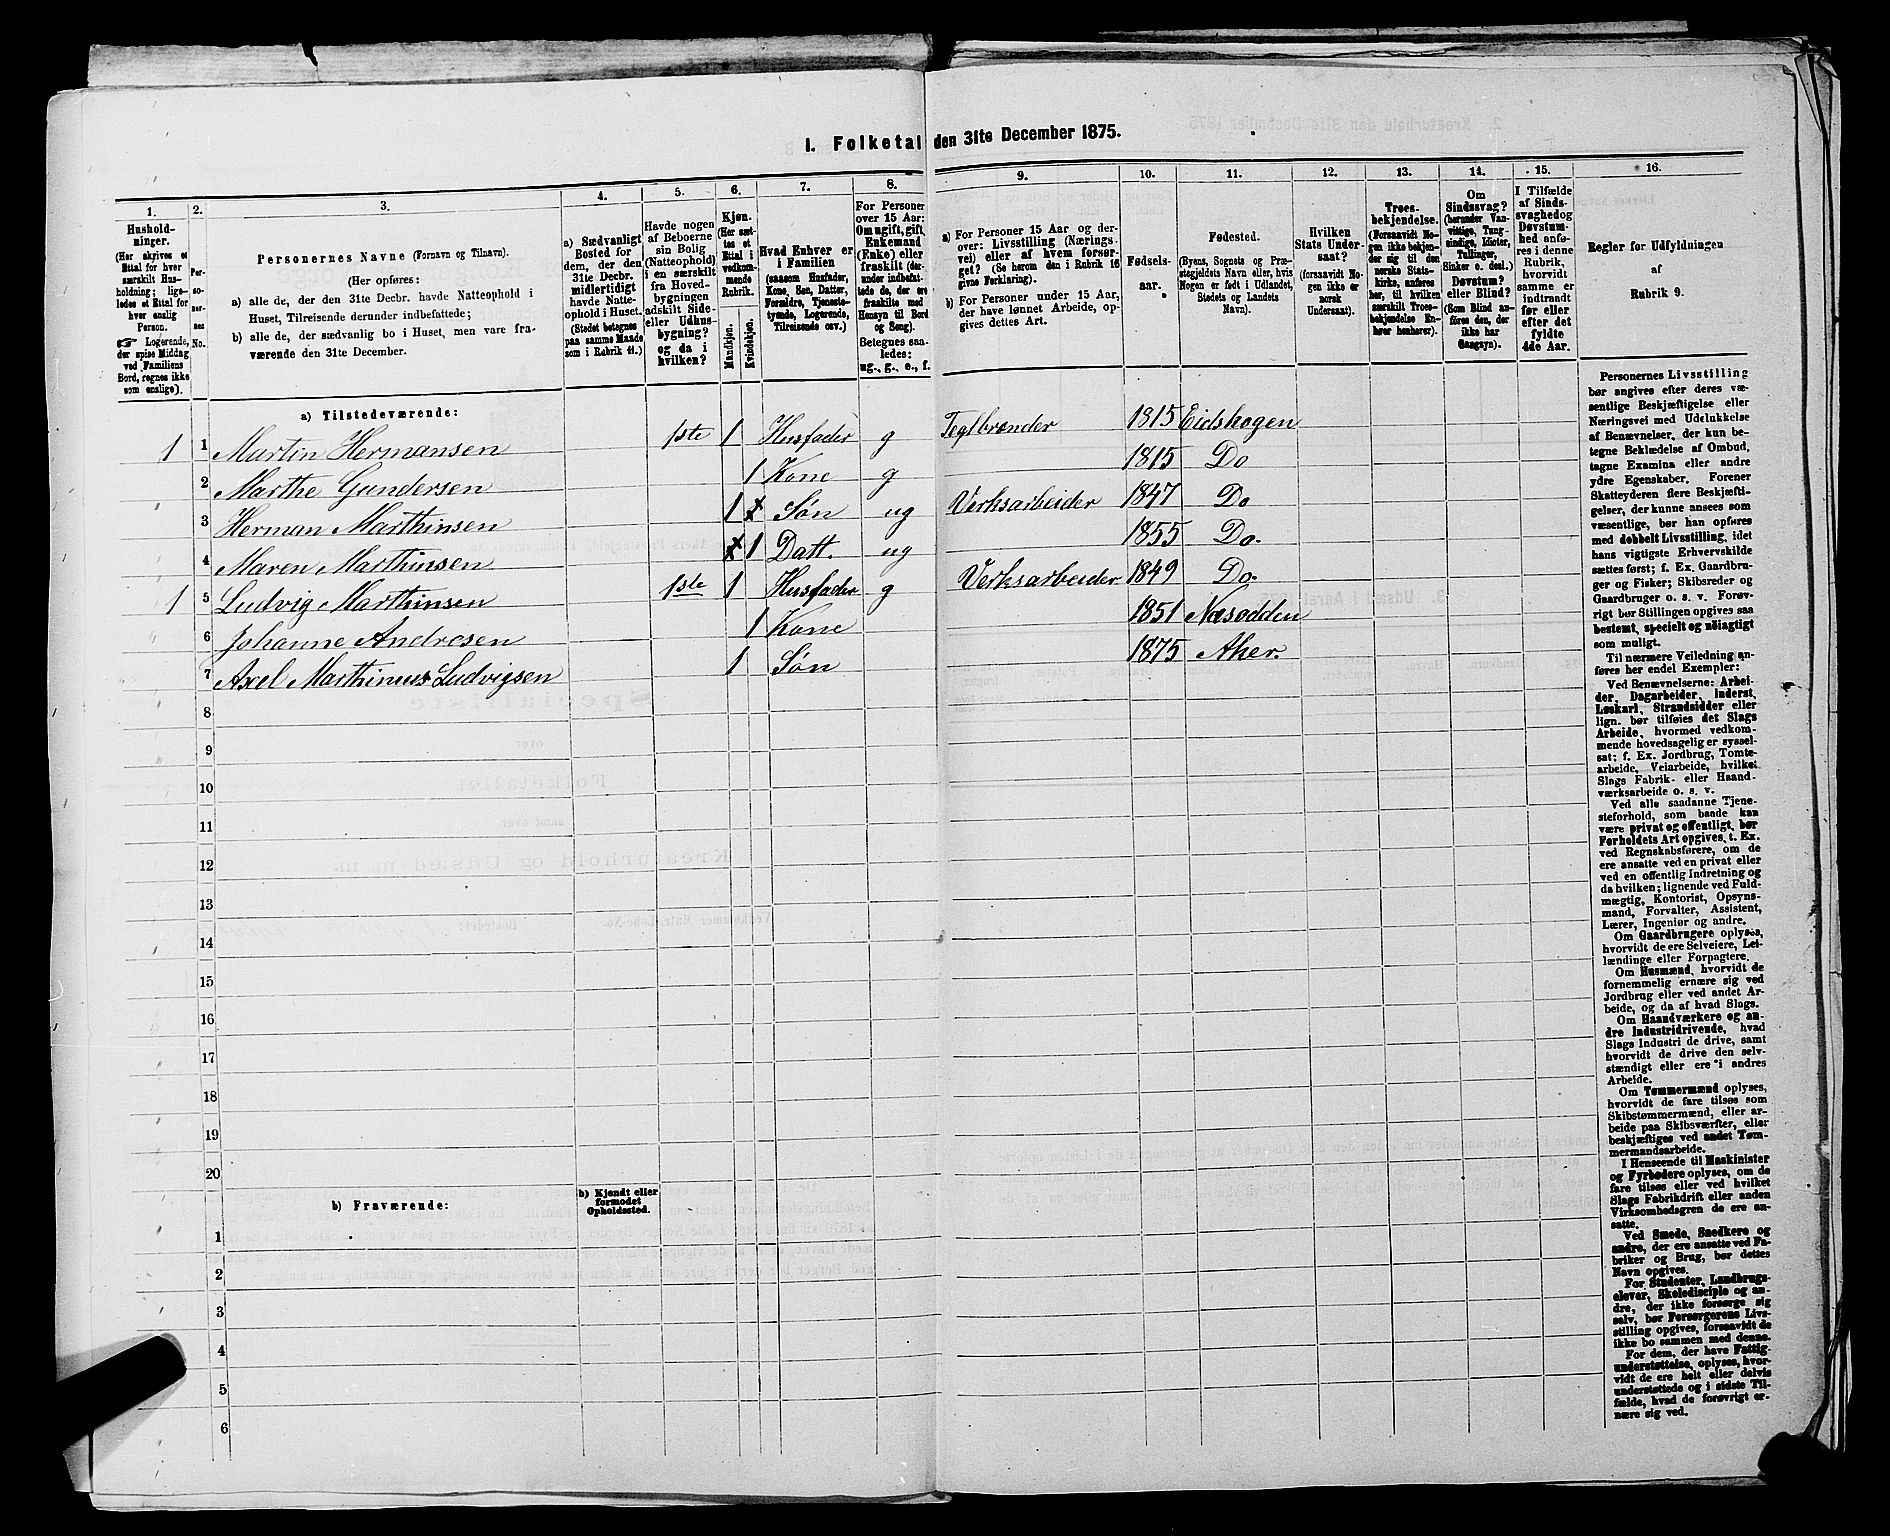 1. Folketal den 31te December 1875.
1.
Husholdninger.
(Her skrives et
Ettal for hver
særskilt Husholdning; ligeledes et Ettal for
hver enslig
Person.
☞ Logerende,
der spise Middag
ved Familiens
Bord, regnes ikke
som enslige).
2.
Personernes
No.
3.
Personernes Navne (Fornavn og Tilnavn).
(Her opføres:
a) alle de, der den 31te Decbr. havde Natteophold i
Huset, Tilreisende derunder indbefattede;
b) alle de, der sædvanlig bo i Huset, men vare fraværende den 31te December.
4.
a) Sædvanligt
Bosted for
dem, der den
31te Decbr.
midlertidigt
havde Natteophold i Huset.
(Stedet betegnes
paa samme Maade
som i Rubrik 11.)
5.
Havde nogen
af Beboerne
sin Bolig
(Natteophold)
i en særskilt
fra Hovedbygningen
adskilt Side-
eller Udhusbygning?
og da i
hvilken?
6.
Kjøn.
(Her sættes et
Ettal i
vedkommende
Rubrik.
Mandkjøn.
Kvindekjøn.
7.
Hvad Enhver er
i Familien
(saasom Husfader,
Kone, Søn, Datter,
Forældre, Tjenestetyende, Logerende,
Tilreisende osv.)
8.
For Personer
over 15 Aar:
Om ugift, gift,
Enkemand
(Enke) eller
fraskilt (derunder indbefattede de, der ere
fraskilte med
Hensyn til Bord
og Seng).
Betegnes saaledes:
ug., g., e., f.
9.
a) For Personer 15 Aar og derover: Livsstilling (Næringsvei) eller af hvem forsørget? (Se herom den i Rubrik 16
givne Forklaring.)
b) For Personer under 15 Aar,
der have lønnet Arbeide, opgives dettes Art.
10.
Fødselsaar.
11.
Fødested.
(Byens, Sognets og Præstegjeldets Navn eller, hvis
Nogen er født i Udlandet,
Stedets og Landets
Navn).
12.
Hvilken
Stats Undersaat?
(forsaavidt Nogen ikke er
norsk
Undersaat).
13.
Troesbekjendelse.
(Forsaavidt Nogen ikke bekjender sig til den
norske Statskirke, anføres
her, til hvilken
særskilt Troesbekjendelse Enhver henhører).
14.
Om
Sindssvag?
(herunder Vanvittige, Tungsindige, Idioter,
Tullinger,
Sinker o. desl.)
Døvstum?
eller Blind?
(Som Blind anføres den, der
ikke har
Gangsyn).
15.
I Tilfælde
af Sindssvaghed og
Døvstumhed anføres i denne
Rubrik,
hvorvidt
samme er
indtraadt
før eller
efter det
fyldte
4de Aar.
16.
Regler for Udfyldningen
af
Rubrik 9.
a) Tilstedeværende:
1 1 Martin Hermansen 1ste 1 Husfader g Teglbrænder 1815 Eidskogen
2 Marthe Gundersen 1 Kone g 1815 Do
3 Herman Marthinsen 1 x Søn ug Verksarbeider 1847 Do
4 Maren Marthinsen x 1 Datt. ug 1855 Do.
1 5 Ludvig Marthinsen 1ste 1 Husfader g Verksarbeider 1849 Do.
6 Johanne Andresen 1 Kone 1851 Næsodden
7 Axel Marthinius Ludvigsen 1 Søn 1875 Aker.
8
9
10
11
12
13
14
15
16
17
18
19
20
b) Fraværende:
b) Kjendt eller
formodet
Opholdssted.
1
2
3
4
5
6
Personernes Livsstilling
bør angives efter deres væsentlige Beskjæftigelse eller
Næringsvei med Udelukkelse
af Benævnelser, der kun betegne Beklædelse af Ombud,
tagne Examina eller andre
ydre Egenskaber. Forener
Skatteyderen flere Beskjæftigelser, der kunne ansees som
væsentlige, bør han opføres
med dobbelt Livsstilling, idet
hans vigtigste Erhvervskilde
sættes først; f. Ex. Gaardbruger og Fisker; Skibsreder og
Gaardbruger o. s. v. Forøvrigt bør Stillingen opgives saa
bestemt, specielt og nöiagtigt
som muligt.
Til nærmere Veiledning anføres her endel Exempler:
Ved Benævnelserne: Arbeider, Dagarbeider, Inderst,
Løskarl, Strandsidder eller
lign. bør tilføies det Slags
Arbeide, hvormed vedkommende hovedsagelig er sysselsat; f. Ex. Jordbrug, Tomtearbeide, Veiarbeide, hvilket
Slags Fabrik- eller Haandværksarbeide o. s. v.
Ved alle saadanne Tjenesteforhold, som baade kan
være privat og offentligt, bør
Forholdets Art opgives, t. Ex.
ved Regnskabsførere, om de
ere ansatte ved en privat eller
ved en offentlig Indretning og
da hvilken; lignende ved Fuldmægtig, Kontorist, Opsynsmand, Forvalter, Assistent,
Lærer, Ingeniør og andre.
Om Gaardbrugere oplyses,
hvorvidt de ere Selveiere, Leilændinge eller Forpagtere.
Om Husmænd, hvorvidt de
fornemmelig ernære sig ved
Jordbrug eller ved andet Arbeide, og da af hvad Slags.
Om Haandværkere og andre Industridrivende, hvad
Slags Industri de drive, samt
hvorvidt de drive den selvstændigt eller ere i andres
Arbeide.
Om Tømmermænd oplyses,
hvorvidt de fare tilsøs som
Skibstømmermænd, eller arbeide paa Skibsværfter, eller
beskjæftiges ved andet Tømmermandsarbeide.
I Henseende til Maskinister
og Fyrbødere oplyses, om de
fare tilsøs eller ved hvilket
Slags Fabrikdrift eller anden
Virksomhedsgren de ere ansatte.
Ved Smede, Snedkere og
andre, der ere ansatte ved Fabriker og Brug, bør dettes
Navn opgives.
For Studenter, Landbrugselever, Skoledisciple og andre, der ikke forsørge sig
selv, bør Forsørgerens Livsstilling opgives, forsaavidt de
ikke bo sammen med denne.
For dem, der have Fattigunderstøttelse, oplyses, hvorvidt de ere helt eller delvis
understøttede og i sidste Tilfælde, hvad de forøvrigt ernære sig ved.